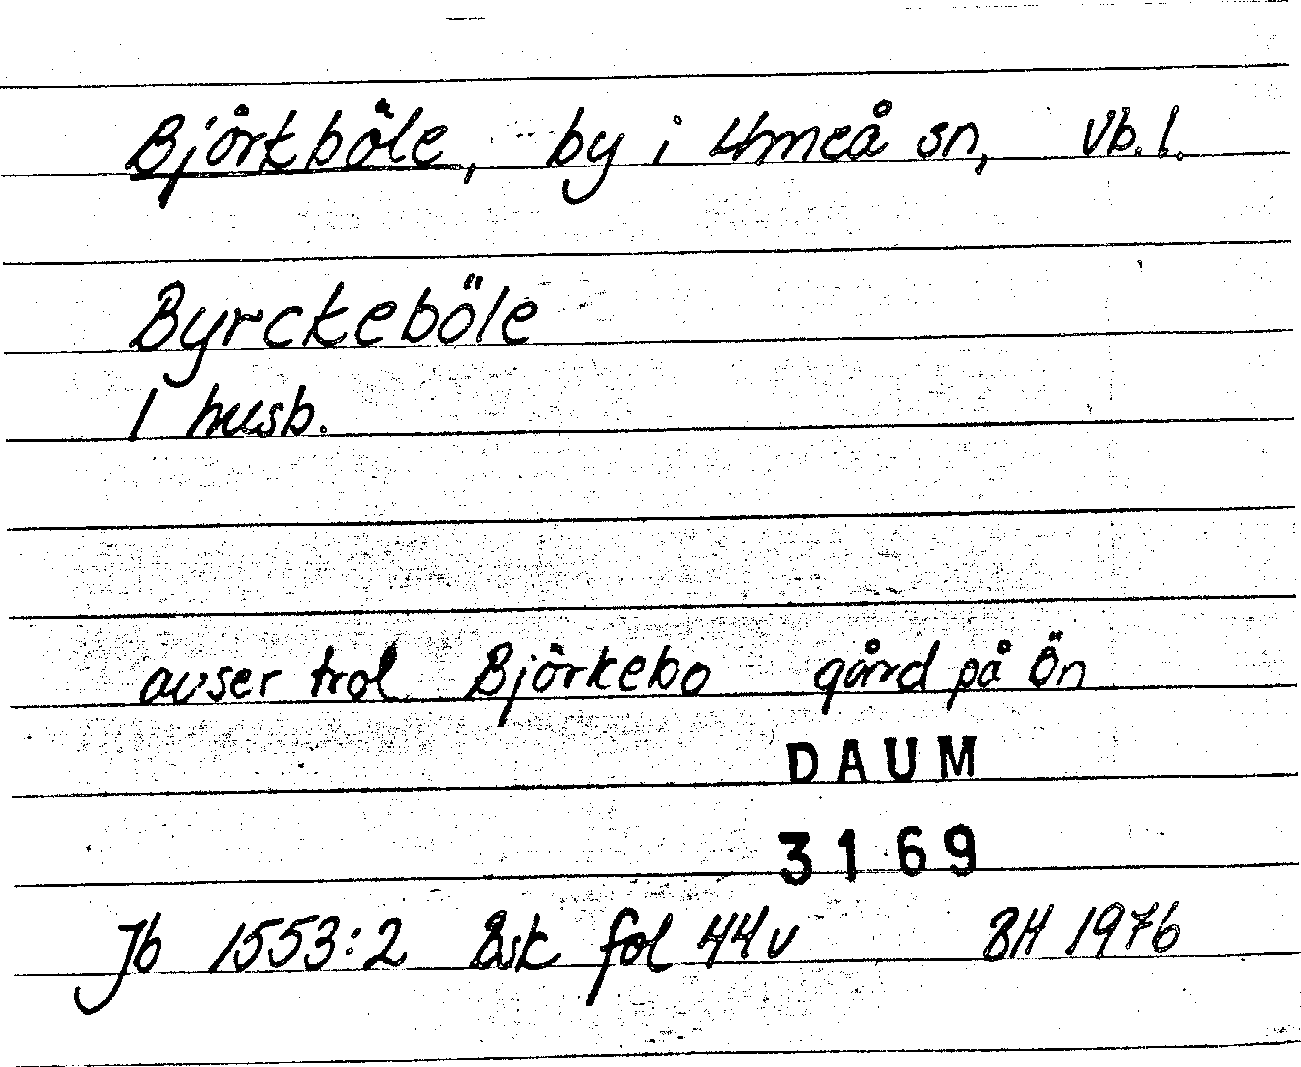 Björkböle, by i Umeå sn, Vb. l.
Byrckeböle
1 husb.
avser trol Björkebo gård på Ön
DAUM
3169
Jb 1553:2 Åsk fol 44v BH 1976